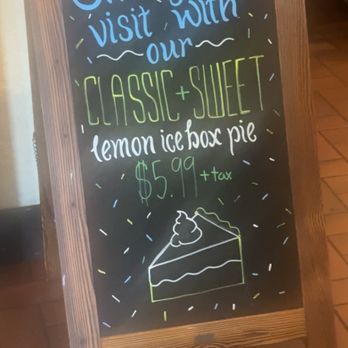 visit with
our
CLASSIC + SWEET
lemon ice box pie
$5.99 + tax